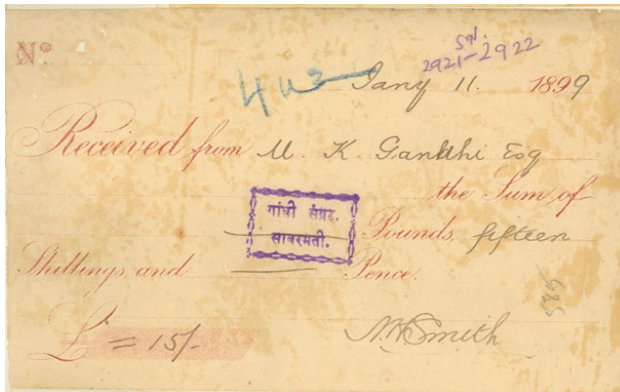 Nº
SN.
2921-2922
Jany 11. 1899
Received from M. K. Gandhi Esq
the Sum of
गांधी संग्रह.
साबरमती.
Pounds, fifteen
Shillings and Pence.
£ = 15/-
Smith